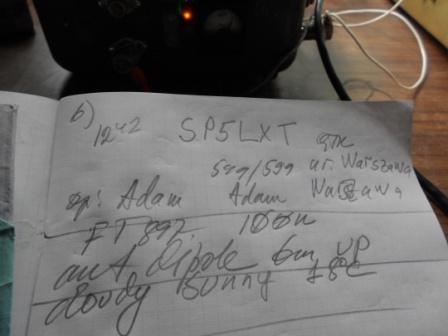 6)
1242 SP5LXT QTH
599/599 ur. Warszawa
op: Adam Adam Warszawa
FT897 100W
ant dipole 6m UP
cloudy sunny 18C